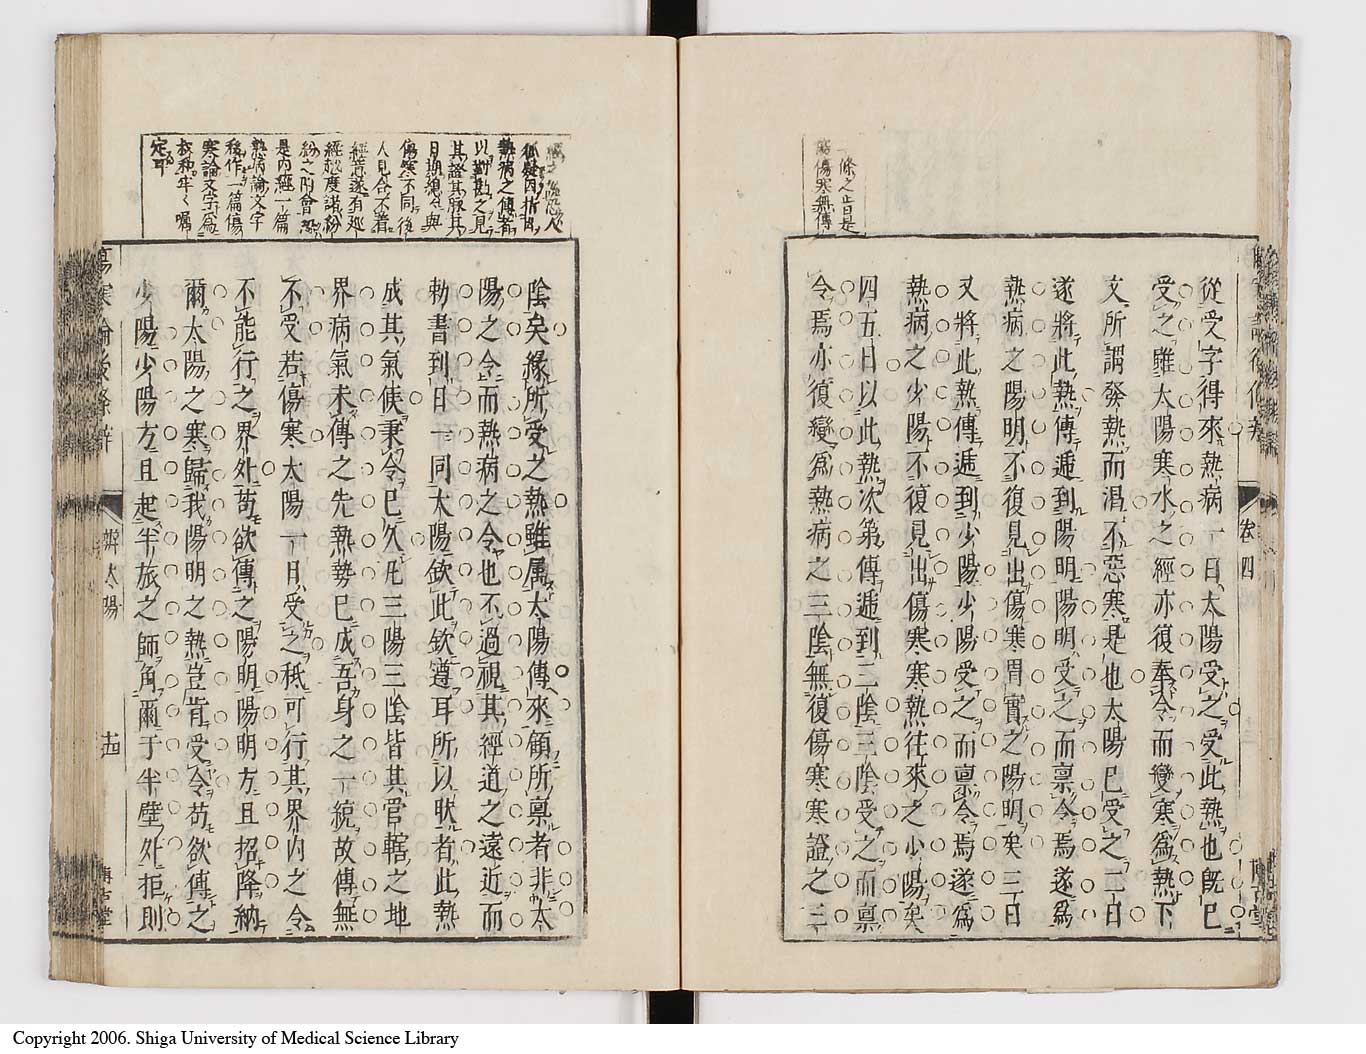 一條之旨是
從受字得來熱病一日太陽受之受此熱也旣已
受之雖太陽寒水之經亦復奉令而變寒爲熱下
文所謂發熱而渴不惡寒是也太陽已受之二日
遂將此熱傳遞到陽明陽明受之而禀令焉遂爲
熱病之陽明不復見出傷寒胃實之陽明矣三日
又將此熱傳遞到少陽少陽受之而禀令焉遂爲
熱病之少陽不復見出傷寒寒熱往來之少陽矣
四五日以此熱次第傳遞到二陰三陰受之而禀
令焉亦復變爲熱病之三陰無復傷寒寒證之三
卷四
熱病之傳者
以勘勘之見
其證其脉其
日期總々與
傷寒不同後
人見合不着
經意遂有延
經起度諸紛
紛之附會
是内經一篇
熱病論文字
後作一篇傷
寒論文字爲
叔和牢々囑
定耳
陰矣緣所受之熱雖属太陽傳來顧所禀者非太
陽之令而熱病之令也不過視其經道之遠近而
勅書到日一同太陽欽此欽遵耳所以狀者此熱
成其氣侯秉令已久凡三陽三陰皆其官轄之地
界病氣未傳之先熱勢已成吾身之一統故傳無
不受若傷寒太陽一日受之秪可行其界内之令
不能行之界外苟欲傳之陽明陽明方且招降納
爾太陽之寒歸我陽明之熱豈肯受令苟欲傳之
少陽少陽方且起半旅之師角爾于半壁外拒則
傷寒論後條辨
辨太陽
十四
博古堂
Copyright 2006. Shiga University of Medical Science Library